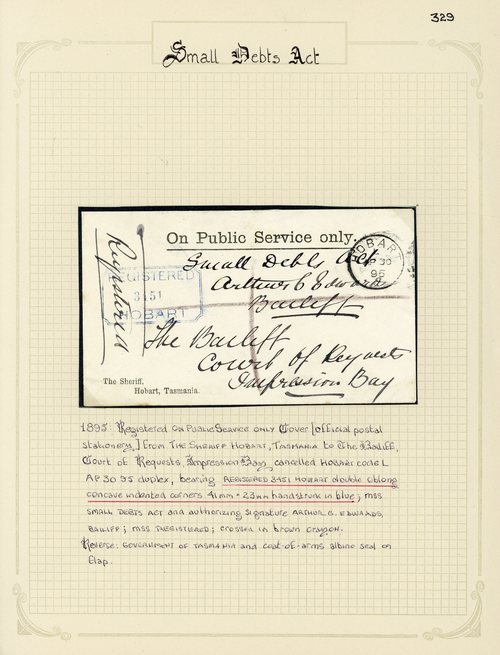 329
Small Debts Act
On Public Service only.
HOBART
AP 30
95
Small Debts Act
Arthur C Edwards
Bailiff
Registered
REGISTERED
3451
HOBART
The Bailiff
Court of Requests
Impression Bay
The Sheriff,
Hobart, Tasmania.
1895: Registered On Public Service only Cover [official postal
stationery,] from The Sheriff Hobart, Tasmania to The Bailiff,
Court of Requests, Impression Bay, cancelled HOBART code L
AP 30 95 duplex, bearing REGISTERED 3451 HOBART double oblong
concave indented corners 41mm × 23mm handstruck in blue; mss
Small Debts Act and authorizing signature Arthur C. Edwards,
Bailiff; mss Registered; crossed in brown crayon.
Reverse: Government of Tasmania and coat-of-arms albino seal on
flap.